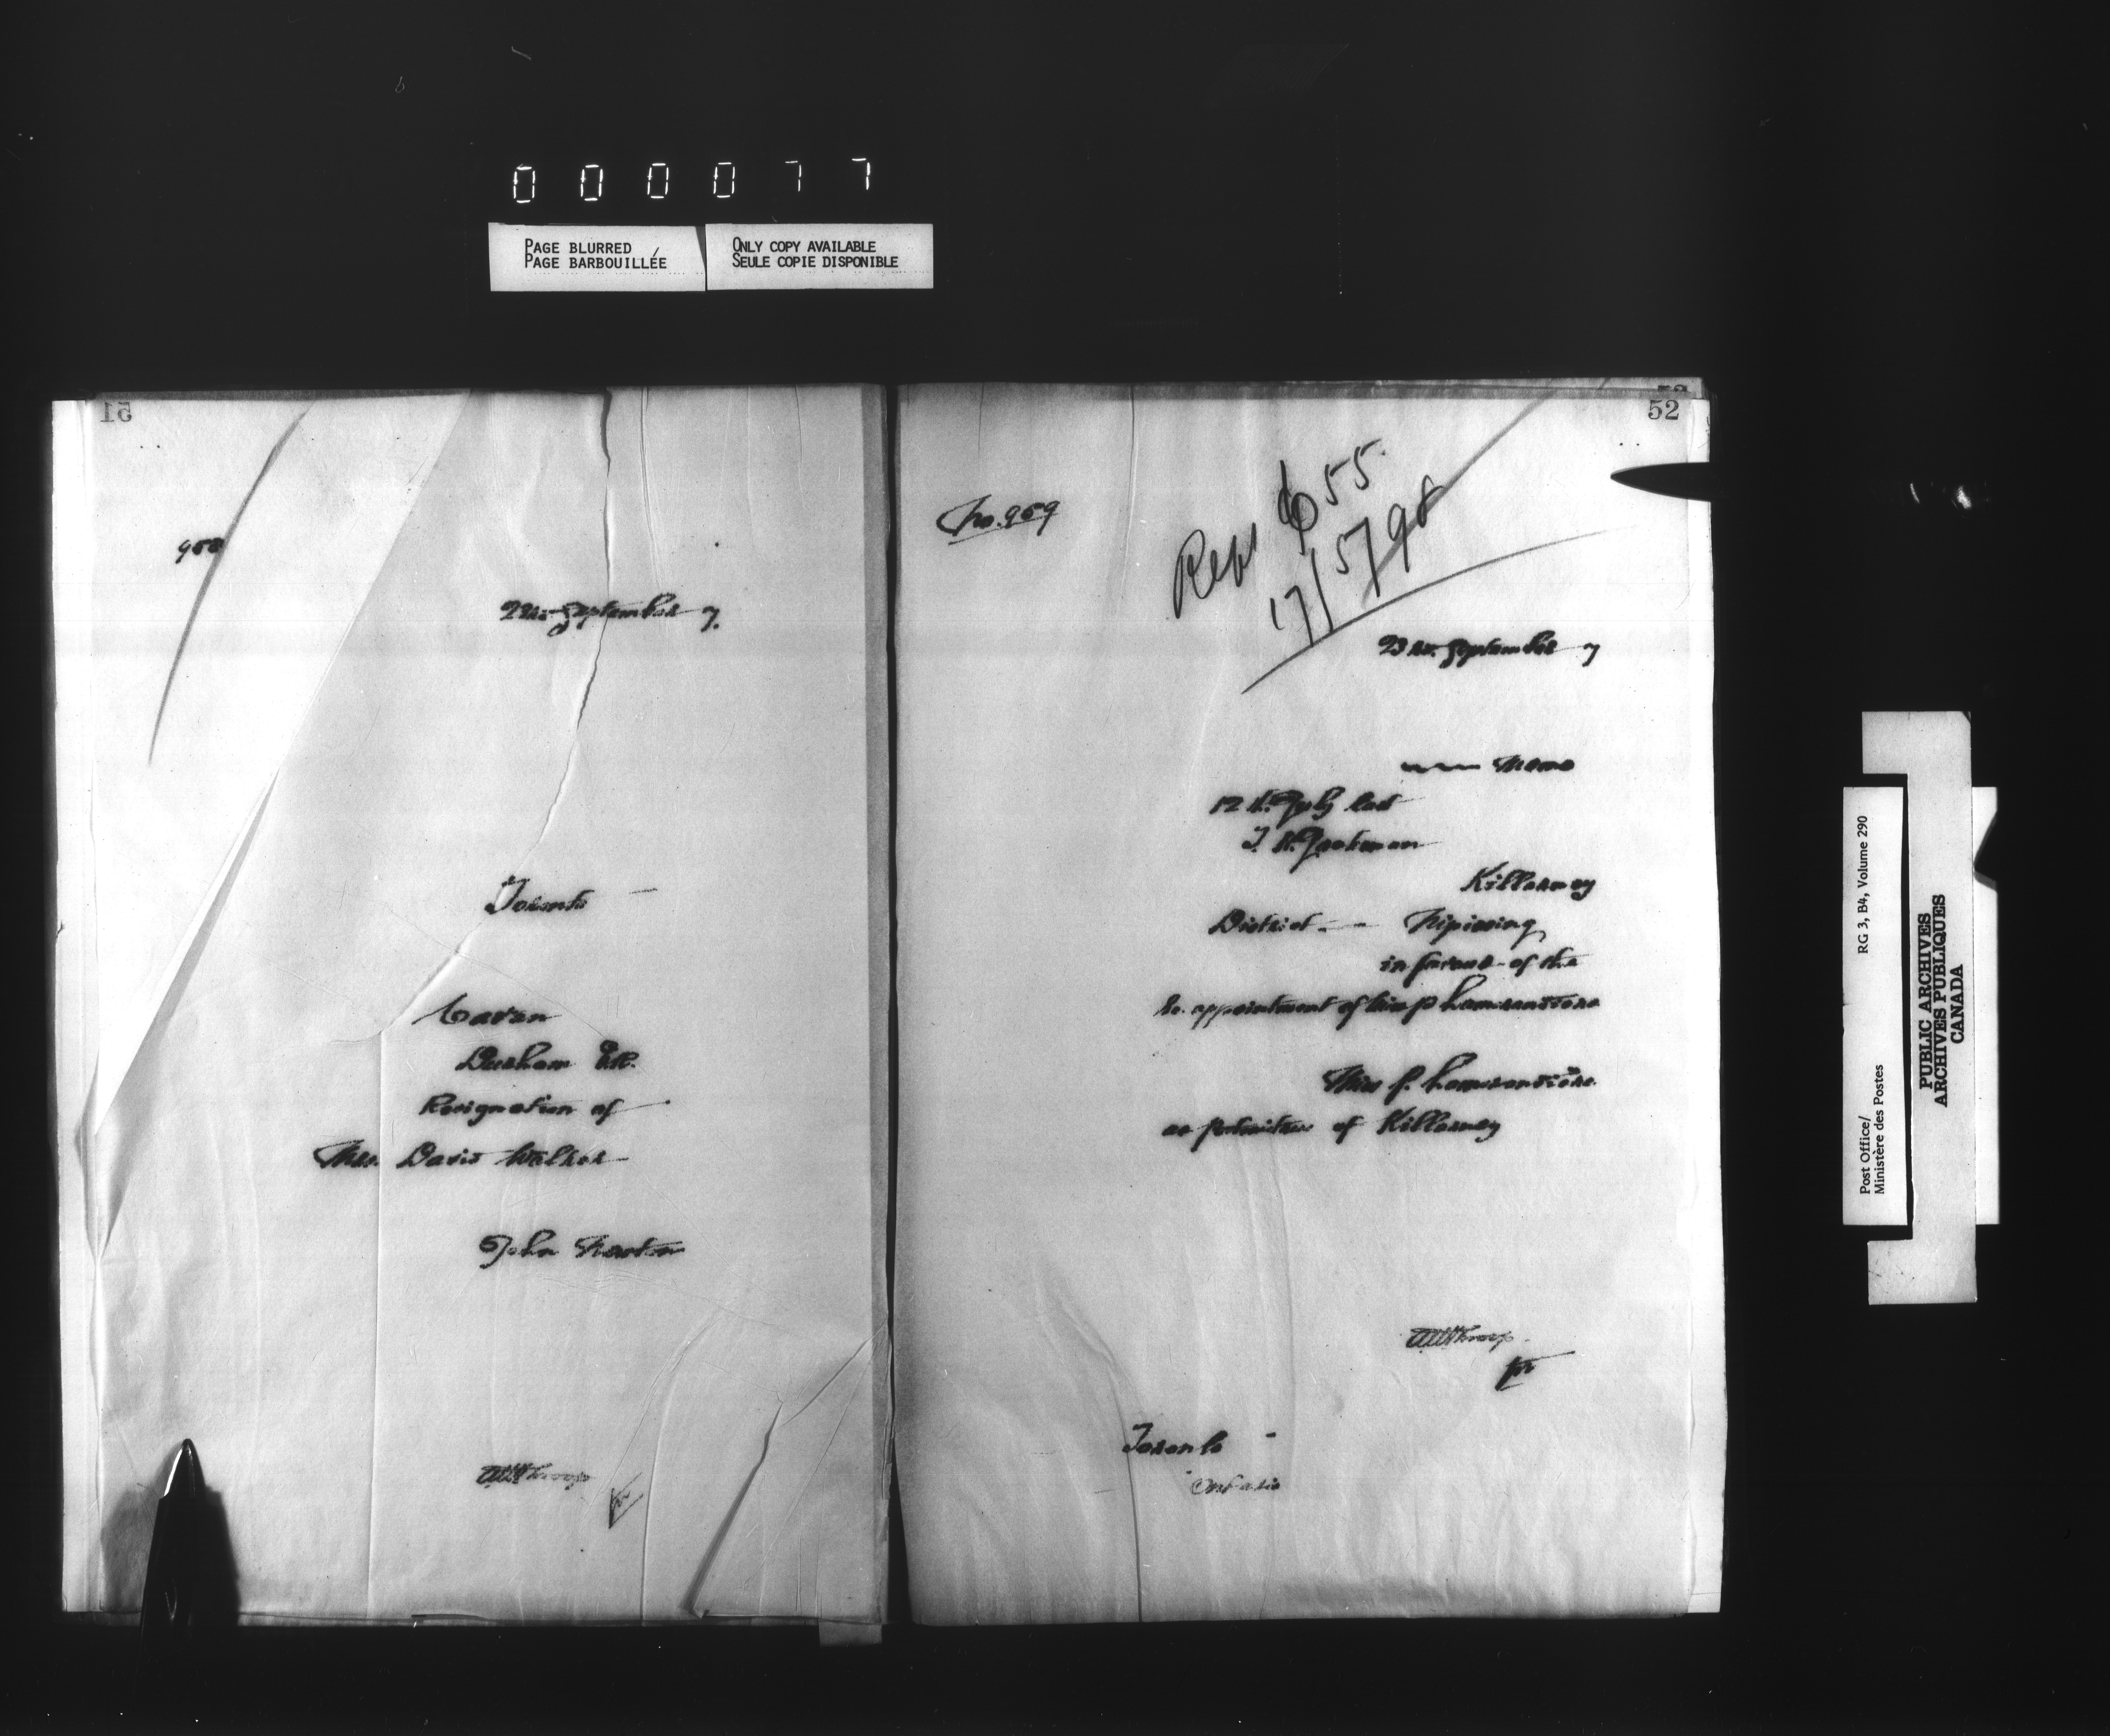 000077
PAGE BLURRED
PAGE BARBOUILLÉE
ONLY COPY AVAILABLE
SEULE COPIE DISPONIBLE
51
958
22nd September 7.
Toronto
Cavan
Durham E.R.
Resignation of
Mrs. David Walker
John Newton
52
No. 959
55
17/5/98
23rd September 7
Memo
12th July last
Killarney
District Nipissing
in favour of the
re appointment of Miss P
Miss P.
as postmistress of Killarney
for
Toronto
Ontario
Post Office/
Ministère des Postes
RG 3, B4, Volume 290
PUBLIC ARCHIVES
ARCHIVES PUBLIQUES
CANADA